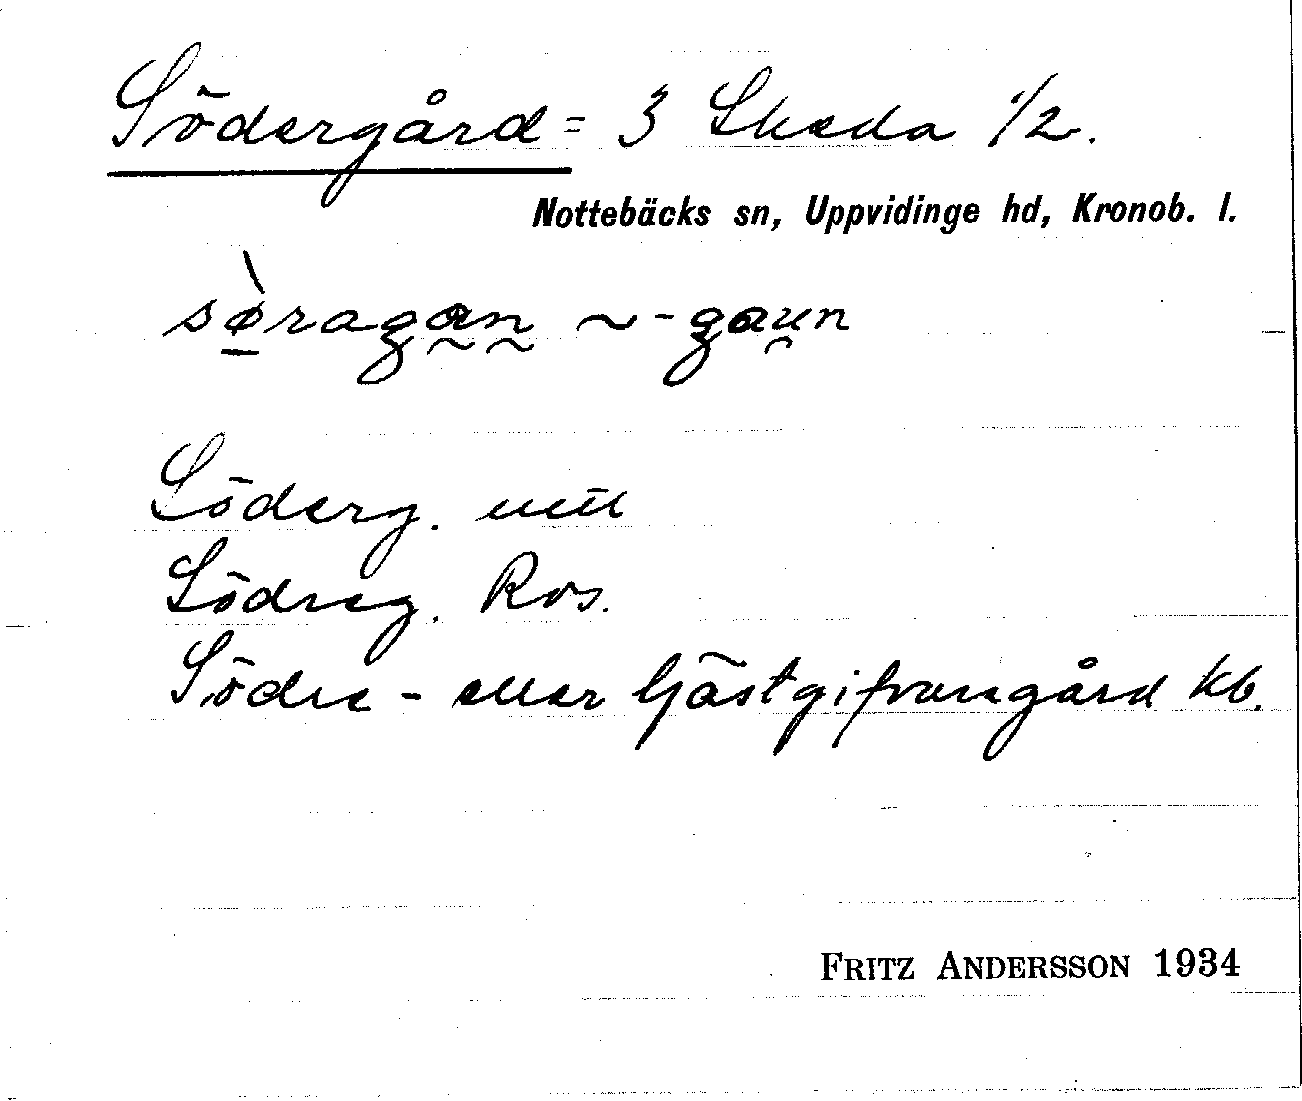 Södergård = 3 Skeda 1/2.
Nottebäcks sn, Uppvidinge hd, Kronob. l.
sø̀ragan ~ -gaun
Söderg.
Södreg. Ros.
Södre- eller Gästgifvaregård kb.
FRITZ ANDERSSON 1934